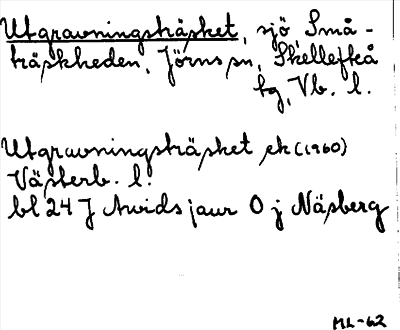 Utgravningsträsket, sjö Små-
träskheden, Jörns sn, Skellefteå
kg, Vb. l.
Utgravningsträsket ek (1960)
Västerb. l.
bl 24 J Arvidsjaur O j Näsberg
ML-62